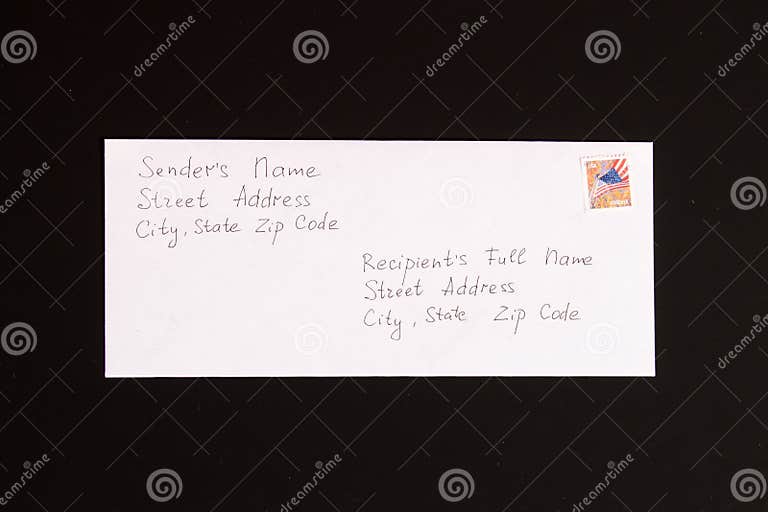 Sender's Name
Street Address
City, State Zip Code
Recipient's Full Name
Street Address
City, State Zip Code
dreamstime
dreamstime
dreamstime
dreamstime
dreamstime
dreamstime
dreamstime
dreamstime
dreamstime